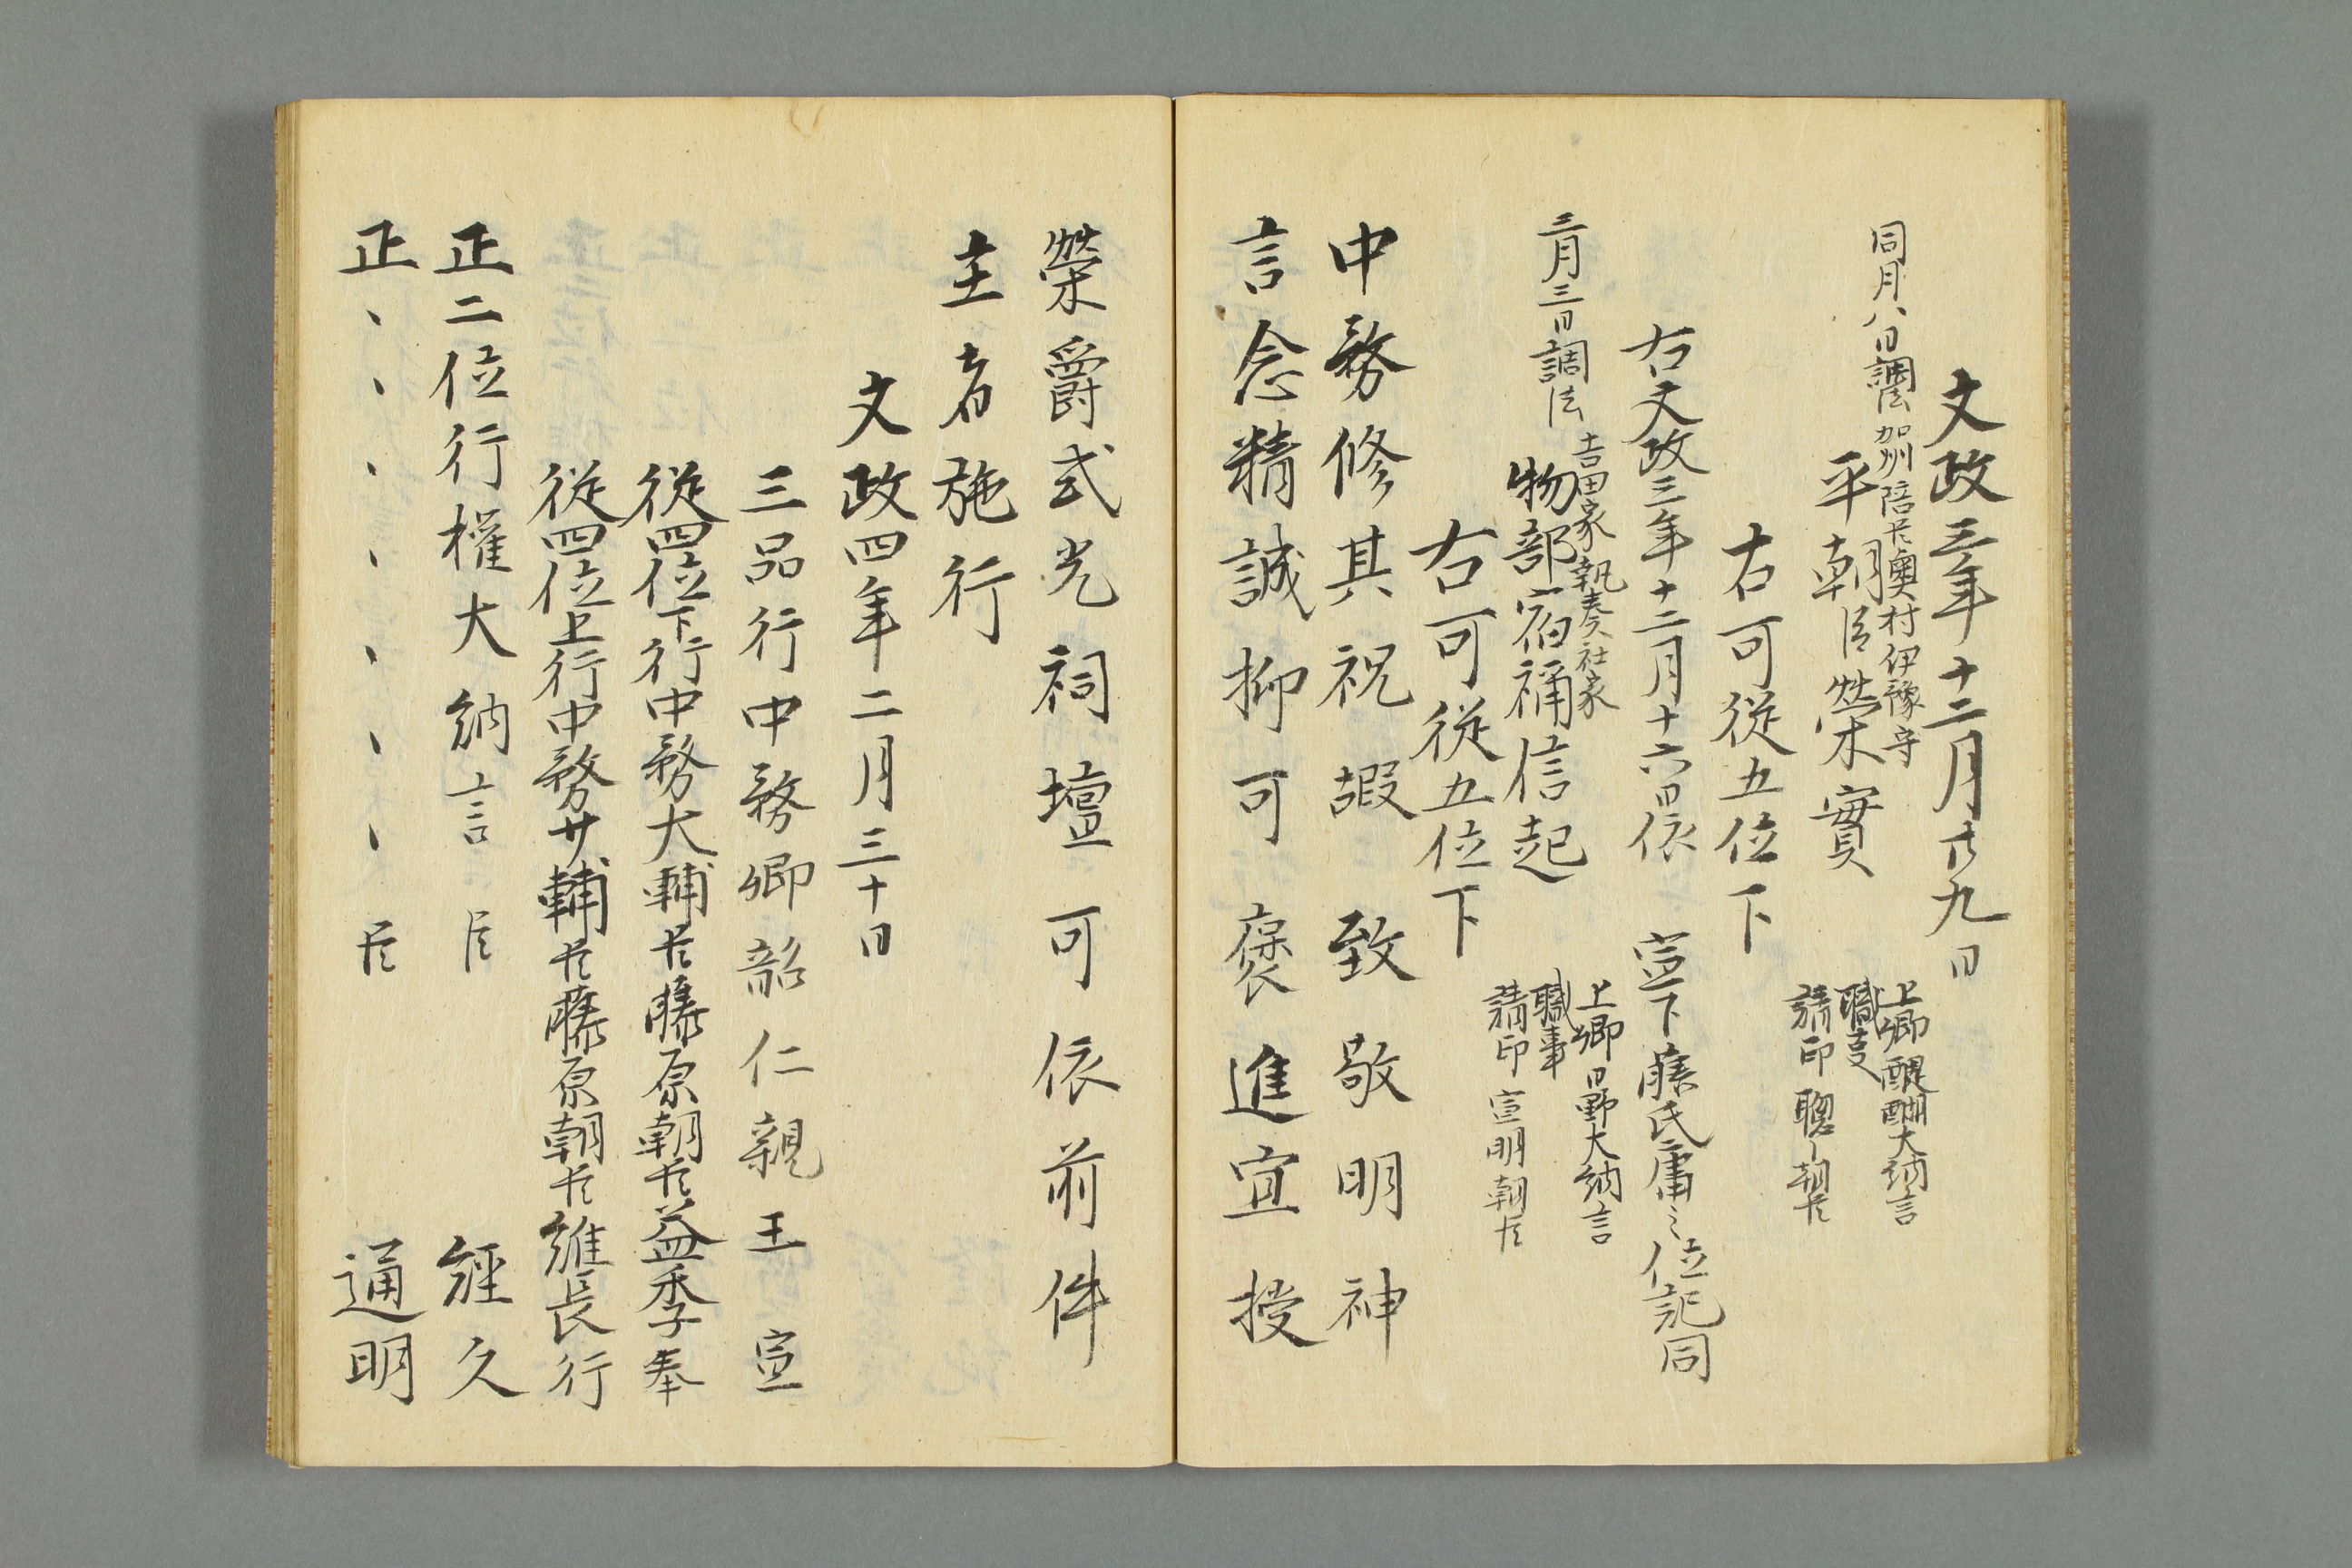 文政三年十二月廿九日
同月八日調法 加州陪臣奥村伊豫守
上卿醍醐大納言
平朝臣榮實
職事
請印 聰〻朝臣
右可從五位下
右文政三年十二月十六日依 宣下藤氏庸之位記同
三月三日調法 吉田家執奏社家
上卿日野大納言
物部宿祢信起
職事
請印 宣明朝臣
右可從五位下
中務修其祝嘏致敬明神
言念精誠抑可褒進宜授
榮爵式光祠壇可依前件
主者施行
文政四年二月三十日
三品行中務卿韶仁親王宣
從四位下行中務大輔臣藤原朝臣益季奉
從四位上行中務少輔臣藤原朝臣維長行
正二位行權大納言臣 經久
正、、、、、、臣 通明